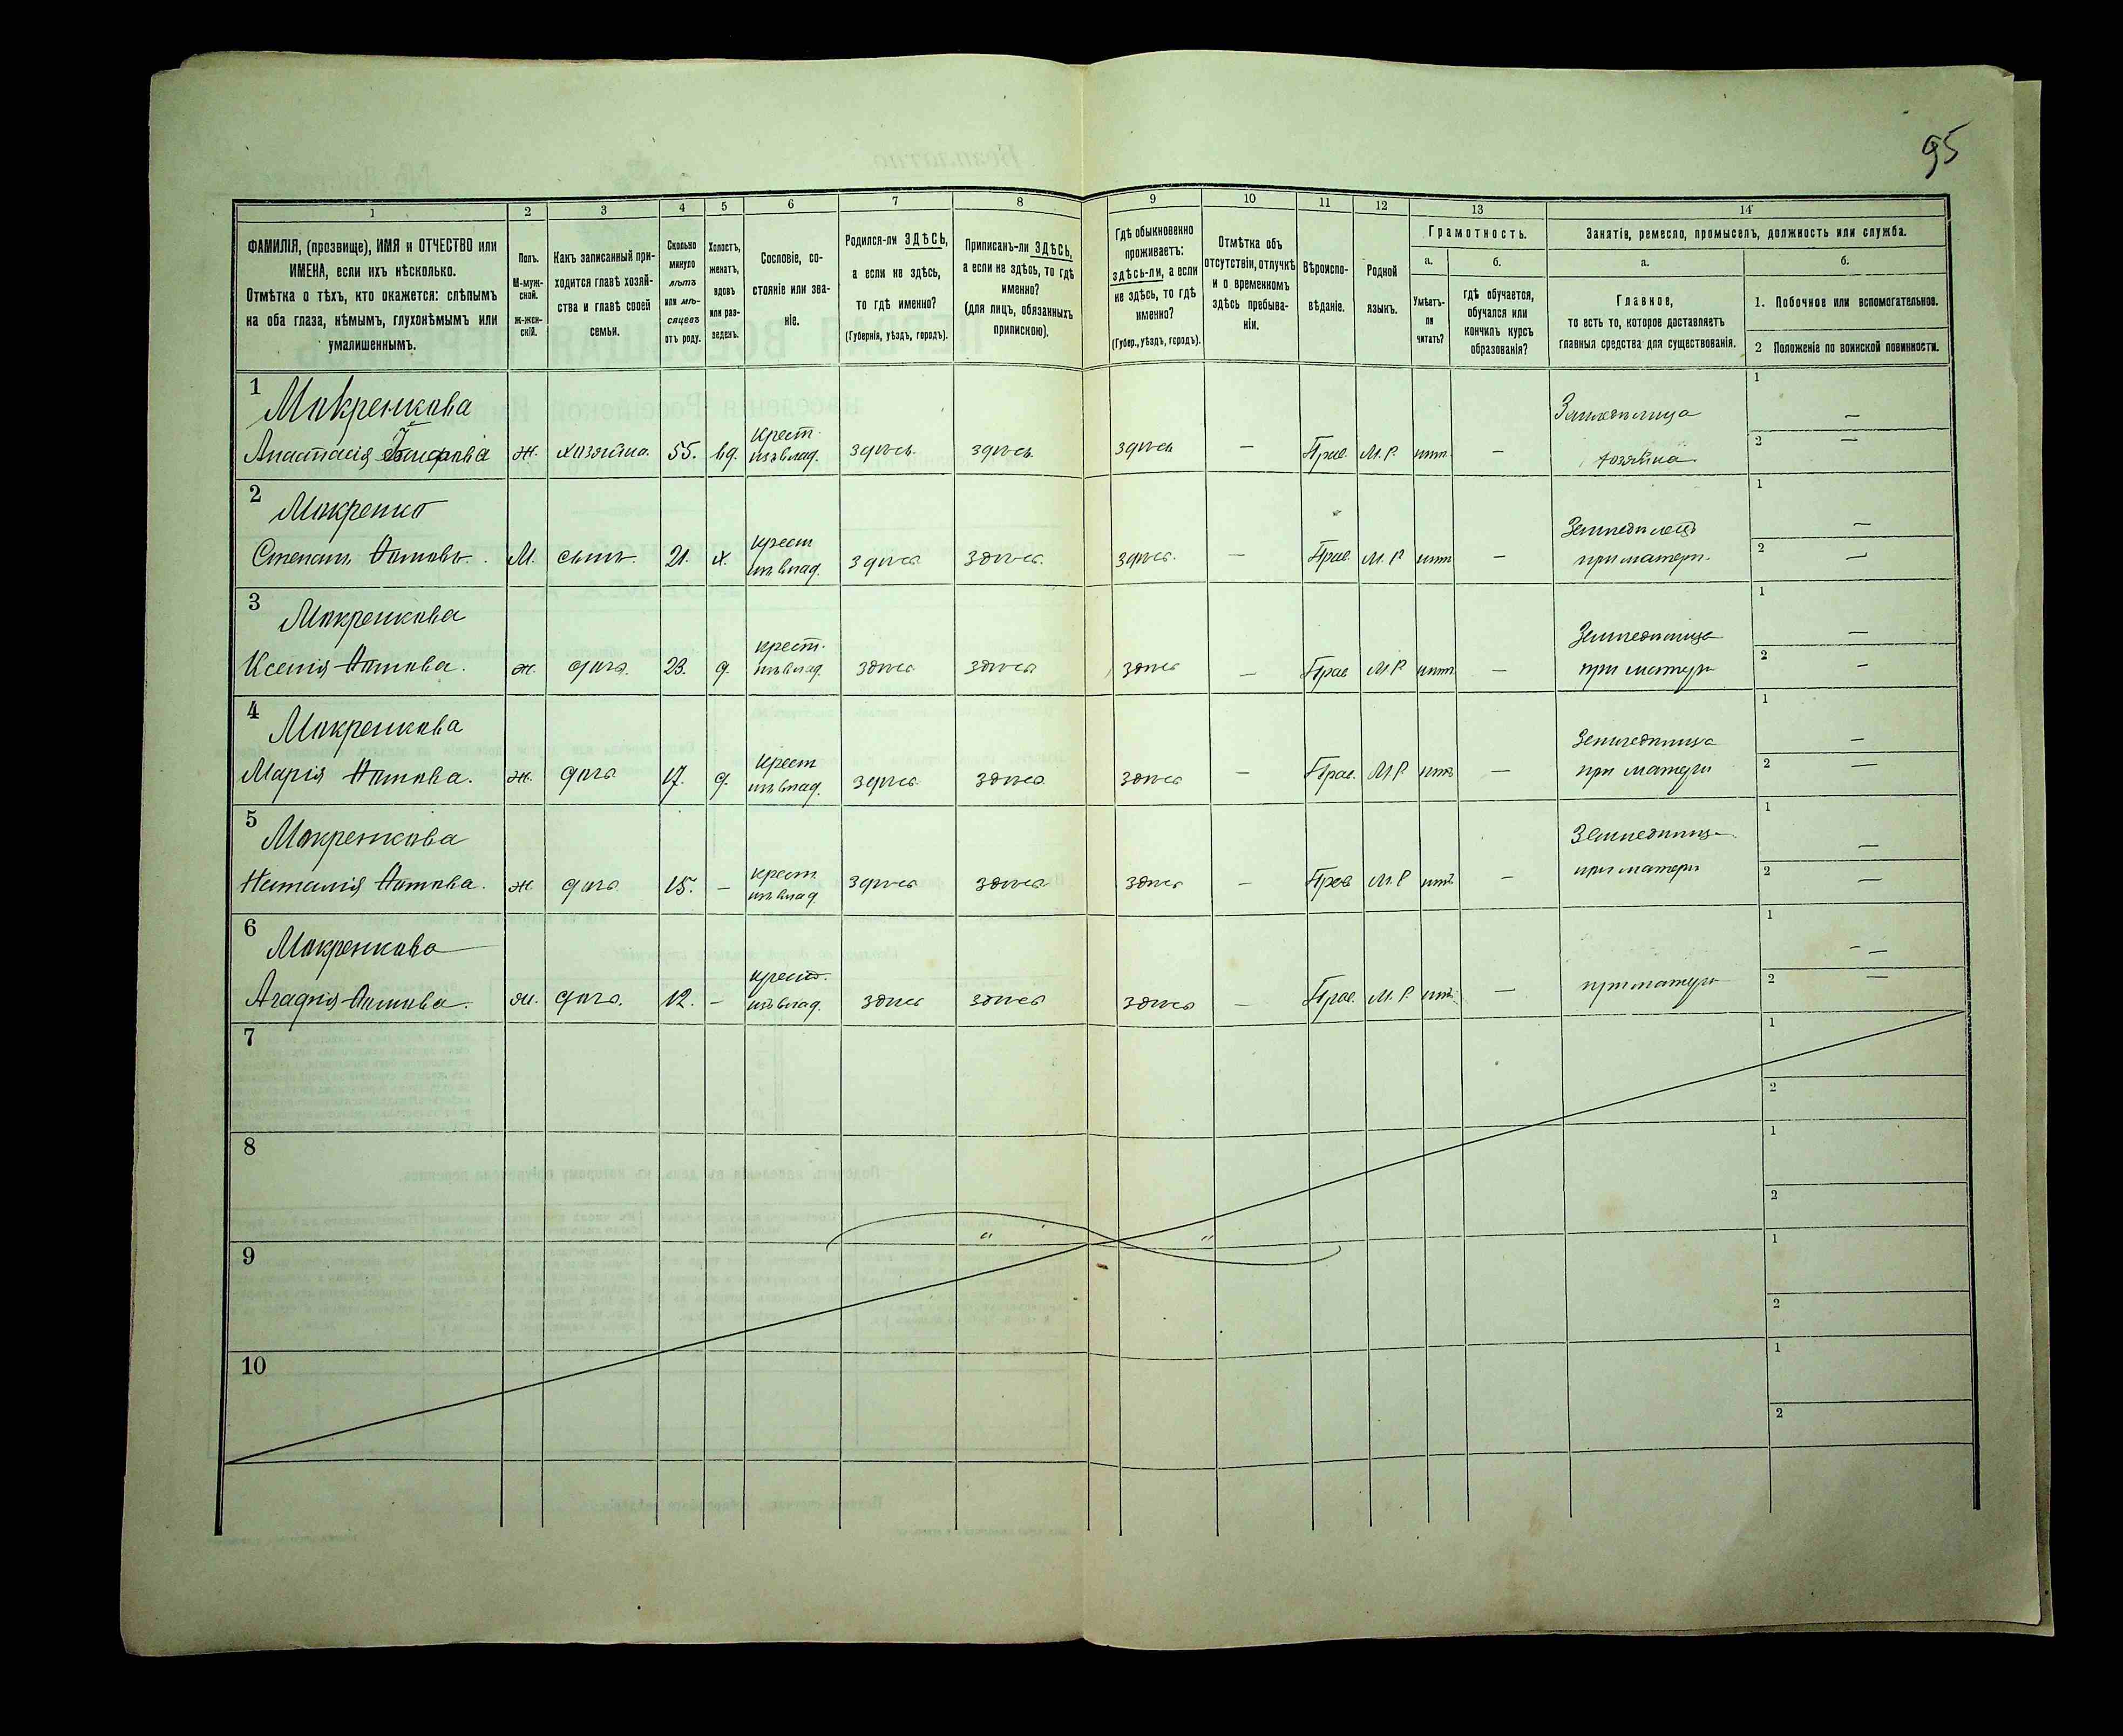 95
1 2 3 4 5 6 7 8 9 10 11 12 13 14
ФАМИЛІЯ, (прозвище), ИМЯ и ОТЧЕСТВО или
ИМЕНА, если ихъ нѣсколько.
Отмѣтка о тѣхъ, кто окажется: слѣпымъ
на оба глаза, нѣмымъ, глухонѣмымъ или
умалишеннымъ.
Полъ.
М-муж-
ской.
Ж-жен-
скій.
Какъ записанный при-
ходится главѣ хозяй-
ства и главѣ своей
семьи.
Сколько
минуло
лѣтъ
или мѣ-
сяцевъ
отъ роду.
Холостъ,
женатъ,
вдовъ
или раз-
веденъ.
Сословіе, со-
стояніе или зва-
ніе.
Родился-ли ЗДѢСЬ,
а если не здѣсь,
то гдѣ именно?
(Губернія, уѣздъ, городъ).
Приписанъ-ли ЗДѢСЬ,
а если не здѣсь, то гдѣ
именно?
(для лицъ, обязанныхъ
припискою).
Гдѣ обыкновенно
проживаетъ:
здѣсь-ли, а если
не здѣсь, то гдѣ
именно?
(Губер., уѣздъ, городъ).
Отмѣтка объ
отсутствіи, отлучкѣ
и о временномъ
здѣсь пребыва-
ніи.
Вѣроиспо-
вѣданіе.
Родной
языкъ.
Грамотность.
а.
Умѣетъ-
ли
читать?
б.
гдѣ обучается,
обучался или
кончилъ курсъ
образованія?
Занятіе, ремесло, промыселъ, должность или служба.
а.
Главное,
то есть то, которое доставляетъ
главныя средства для существованія.
б.
1. Побочное или вспомогательное.
2 Положеніе по воинской повинности.
1 Макренкова 1
Крест. Земледѣлица
Анастасія ж. хозяйка. 55. вд. изъ влад. здѣсь. здѣсь здѣсь — Прав. М. Р. нѣтъ — хозяйка. 2 —
2 Макренко 1
Крест Земледѣлецъ —
Степанъ М. сынъ. 21. х. изъ влад. здѣсь здѣсь. здѣсь. — Прав. М. Р нѣтъ — при матери. 2 —
3 Макренкова 1
крест. Земледѣлица —
Ксенія ж. дочь. 23. д. изъ влад. здѣсь здѣсь здѣсь — Прав М Р нѣтъ — при матери 2 —
4 Макренкова 1
Крест Земледѣлица —
Марія ж. дочь 17. д. изъ влад. здѣсь. здѣсь здѣсь — Прав. М Р. нѣтъ — при матери 2 —
5 Макренкова 1
крест. Земледѣлица —
Наталія ж дочь 15. — изъ влад. здѣсь здѣсь здѣсь — Прав М. Р нѣтъ — при матери 2 —
6 Макренкова 1
крест. —
Агафія ж. дочь. 12. — изъ влад. здѣсь здѣсь здѣсь — Прав. М. Р. нѣтъ — при матери 2 —
7 1
2
8 1
2
9 1
2
10 1
2